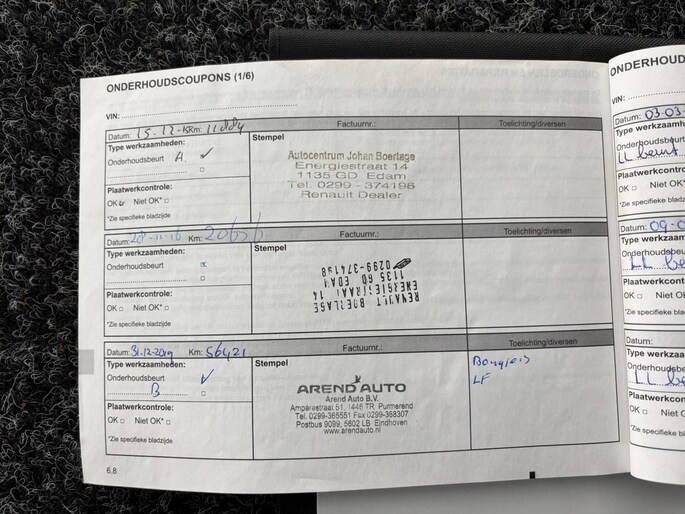 ONDERHOUDSCOUPONS (1/6)
VIN:
Datum: 15-12-15 Km: 11884
Factuurnr.:
Toelichting/diversen
Type werkzaamheden:
Onderhoudsbeurt A ✓
Stempel
Autocentrum Johan Boerlage
Energiestraat 14
1135 GD Edam
Tel. 0299 - 374198
Renault Dealer
Plaatwerkcontrole:
OK Niet OK*
*Zie specifieke bladzijde
Datum: 28-11-16 Km: 20656
Factuurnr.:
Toelichting/diversen
Type werkzaamheden:
Onderhoudsbeurt
Stempel
RENAULT BOERLAGE
ENERGIESTRAAT 14
1135 GD EDAM
0299-374198
Plaatwerkcontrole:
OK Niet OK*
*Zie specifieke bladzijde
Datum: 31-12-2019 Km: 56421
Factuurnr.:
Toelichting/diversen
Type werkzaamheden:
Onderhoudsbeurt ✓
B
Stempel
AREND AUTO
Arend Auto B.V.
Ampèrestraat 51, 1446 TR Purmerend
Tel. 0299-365551 Fax 0299-368307
Postbus 9099, 5602 LB Eindhoven
www.arendauto.nl
LF
Plaatwerkcontrole:
OK Niet OK*
*Zie specifieke bladzijde
6.8
ONDERHOUDSCO
VIN:
Datum: 03-03-
Type werkzaamh
Onderhoudsbeurt
LL beurt
Plaatwerkcontrole:
OK Niet OK*
*Zie specifieke bladzijd
Datum: 09-0
Type werkzaam
Onderhoudsbeurt
Plaatwerkcontr
OK Niet OK
*Zie specifieke bladz
Datum:
Type werkzaa
Onderhoudsbe
Plaatwerkcon
OK Niet C
*Zie specifieke bla